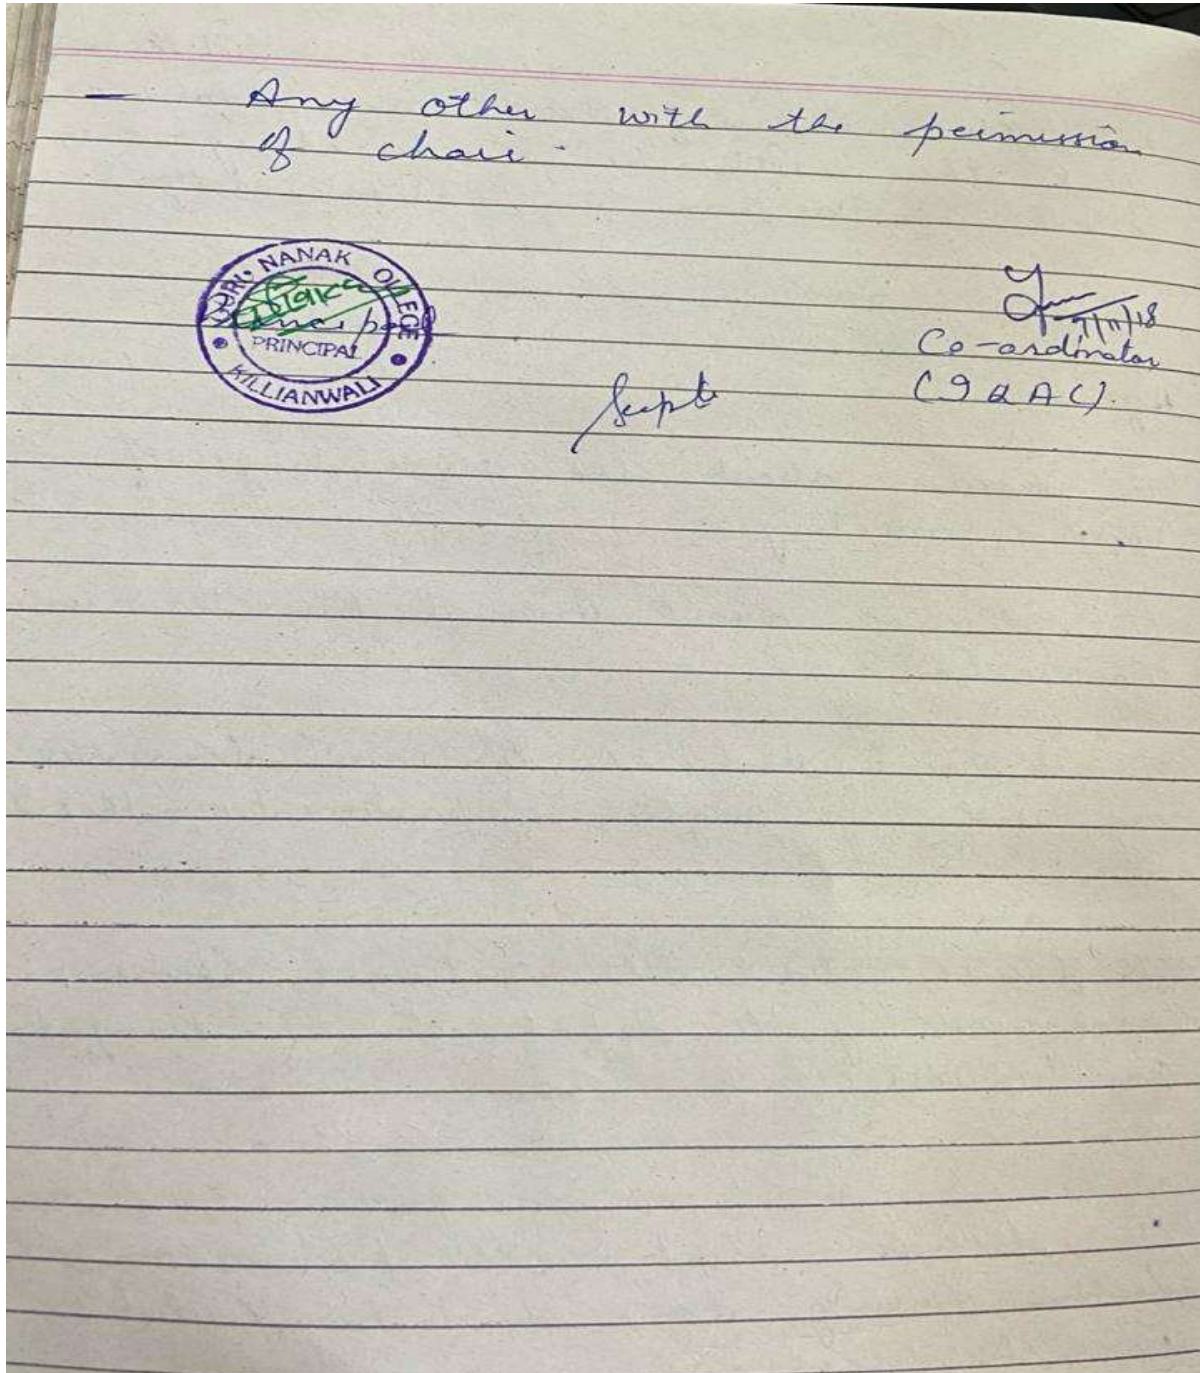 — Any other with the permission
of chair.
GURU NANAK COLLEGE
Principal
PRINCIPAL
KILLIANWALI
7/11/18
Co-ordinator
(IQAC).